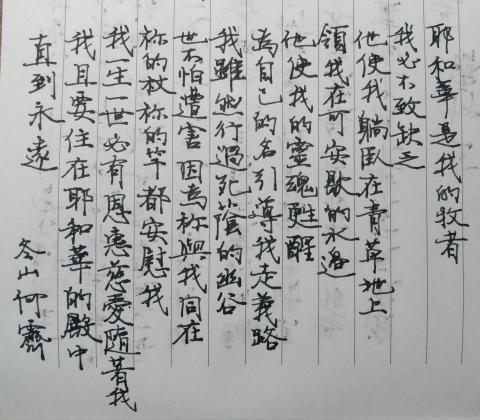 耶和華是我的牧者
我必不致缺乏
他使我躺臥在青草地上
領我在可安歇的水邊
他使我的靈魂甦醒
為自己的名引導我走義路
我雖然行過死蔭的幽谷
也不怕遭害因為祢與我同在
祢的杖祢的竿都安慰我
我一生一世必有恩惠慈愛隨著我
我且要住在耶和華的殿中
直到永遠
冬山仰